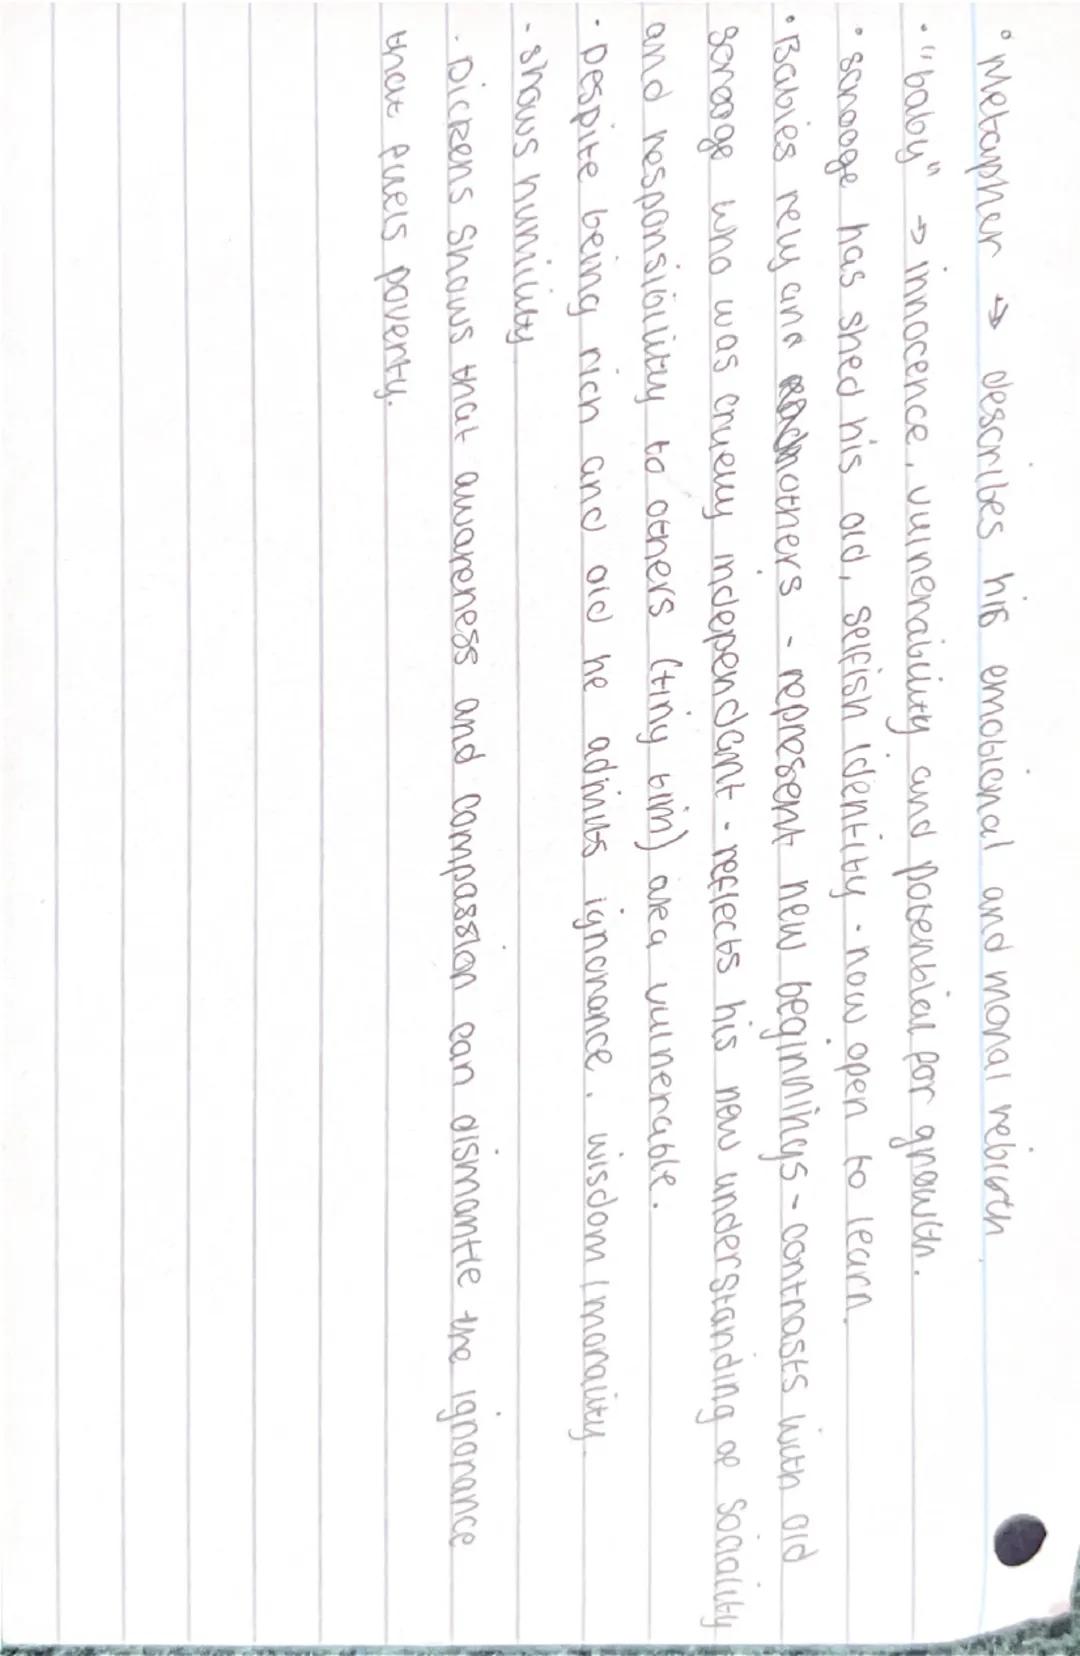 • Metaphor → describes his emotional and moral rebirth.
• "baby" → innocence, vulnerability and potential for growth.
• scrooge has shed his old, selfish identity - now open to learn.
• Babies rely and on others - represent new beginnings - contrasts with old
scrooge who was cruelly independant - reflects his new understanding of sociality
and responsibility to others (tiny tim) are a vulnerable.
• Despite being rich and old he admits ignorance. wisdom / morality.
- shows humility
• Dickens shows that awareness and compassion can dismantle the ignorance
that fuels poverty.